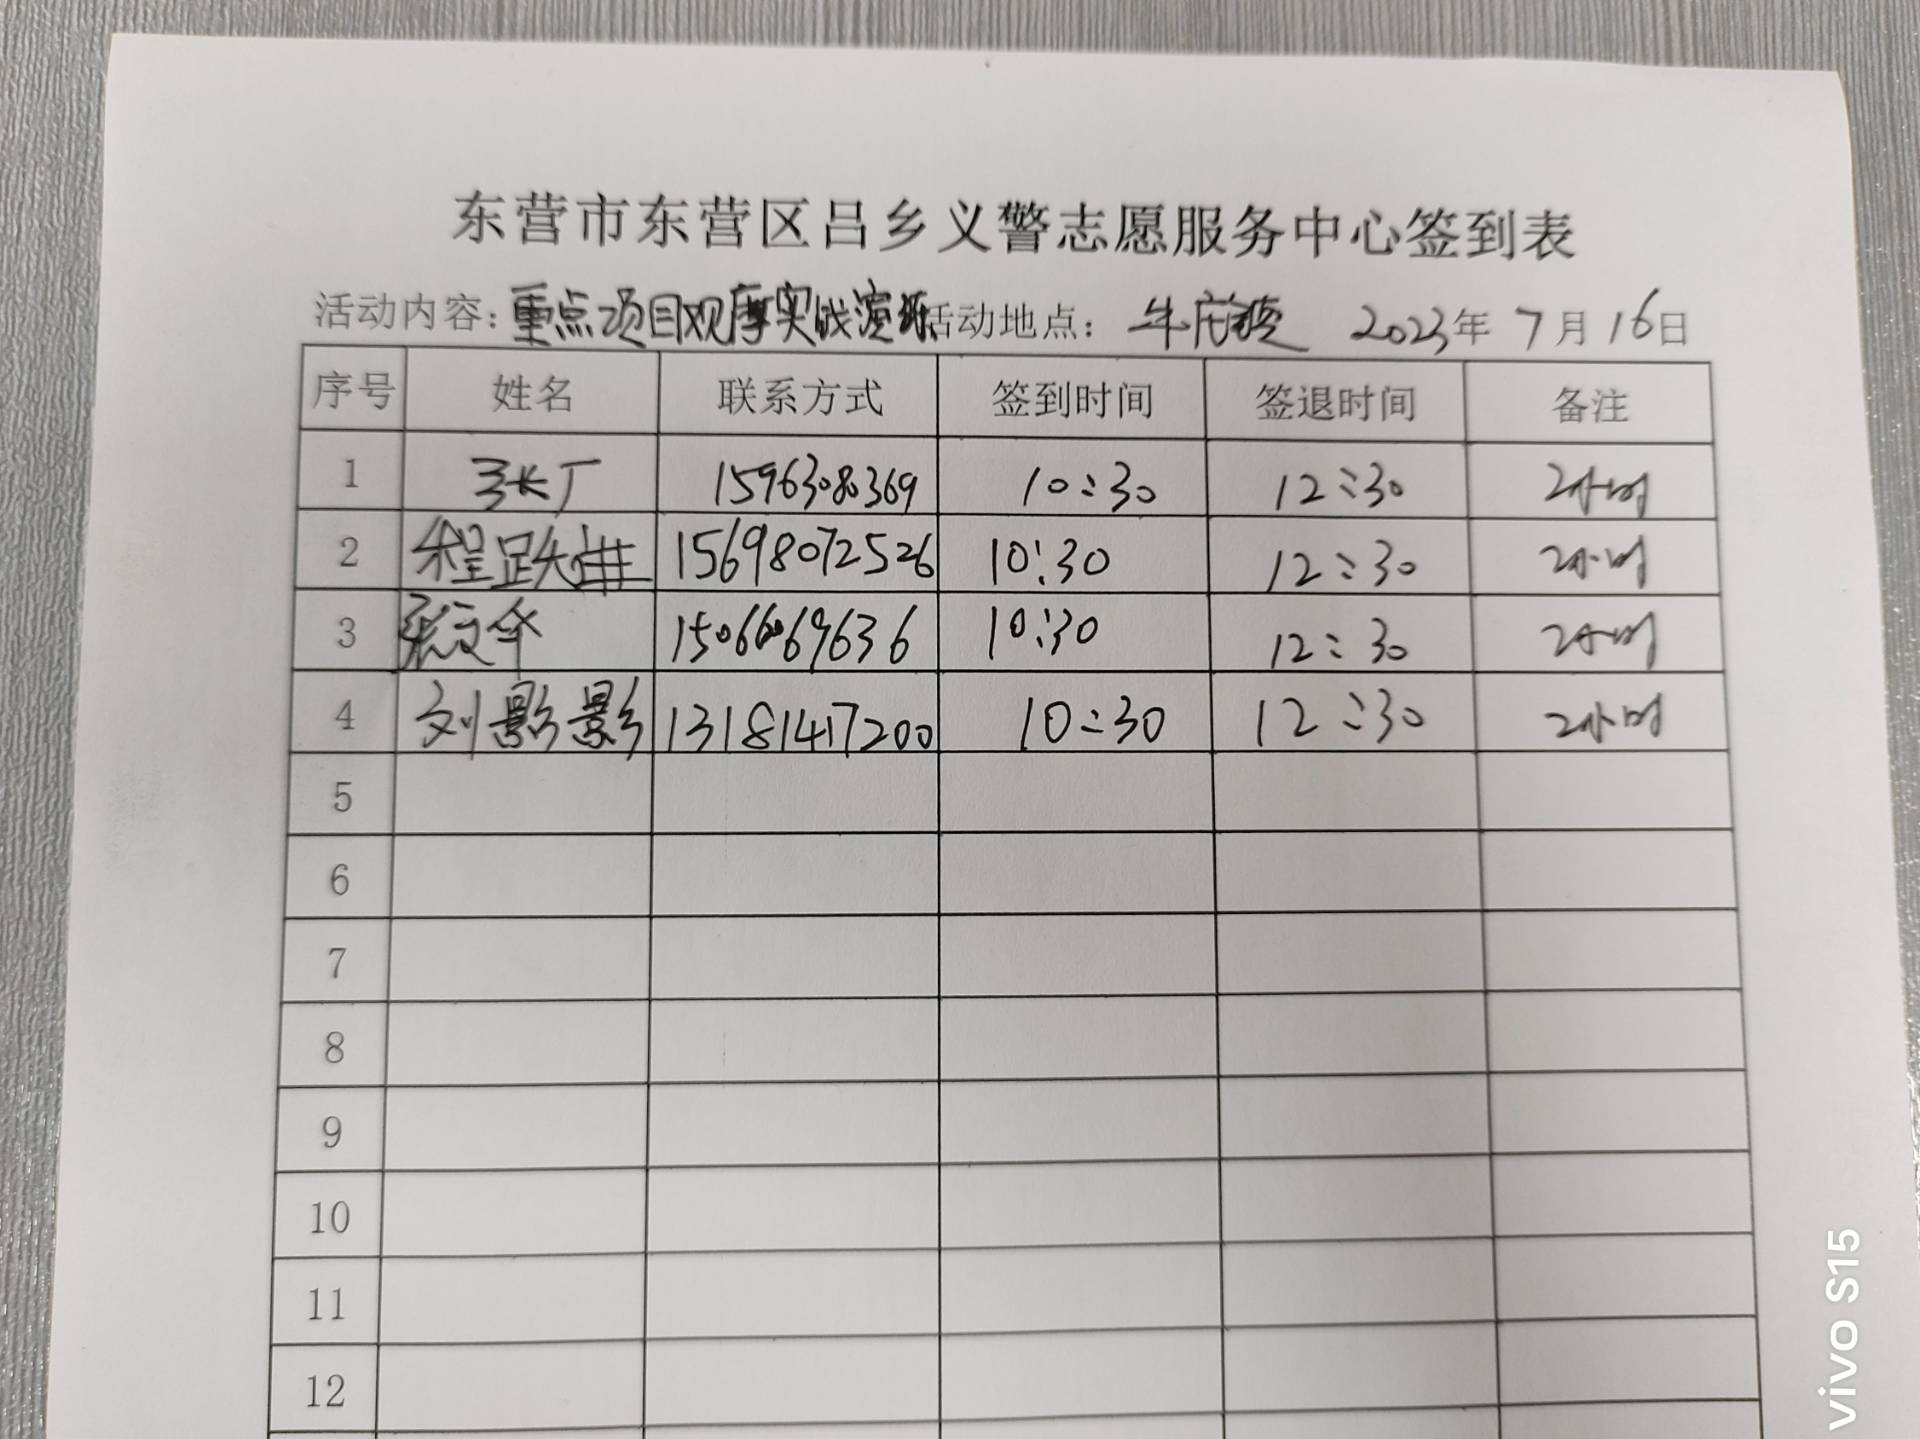 东营市东营区吕乡义警志愿服务中心签到表
活动内容：重点项目观摩实战演练 活动地点：牛庄镇 2023年 7月16日
序号 姓名 联系方式 签到时间 签退时间 备注
1 15963080369 10:30 12:30 2小时
2 程跃进 15698072526 10:30 12:30 2小时
3 张文华 15066069636 10:30 12:30 2小时
4 刘影影 13181417200 10:30 12:30 2小时
5
6
7
8
9
10
11
12
vivo S15